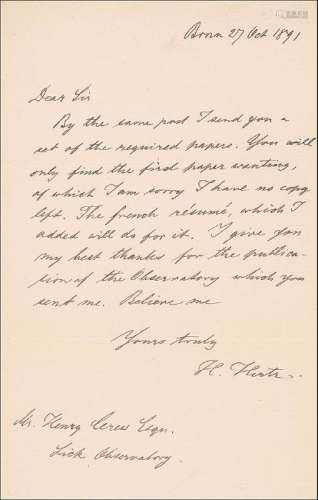 Bonn 27 Oct 1891
Dear Sir
By the same post I send you a
set of the required papers. You will
only find the first paper wanting,
of which I am sorry I have no copy
left. The french résumé, which I
added will do for it. I give you
my best thanks for the publica-
tion of the Observatory which you
sent me. Believe me
Yours truly
H. Hertz
Mr. Henry Crew Esqu.
Lick Observatory.